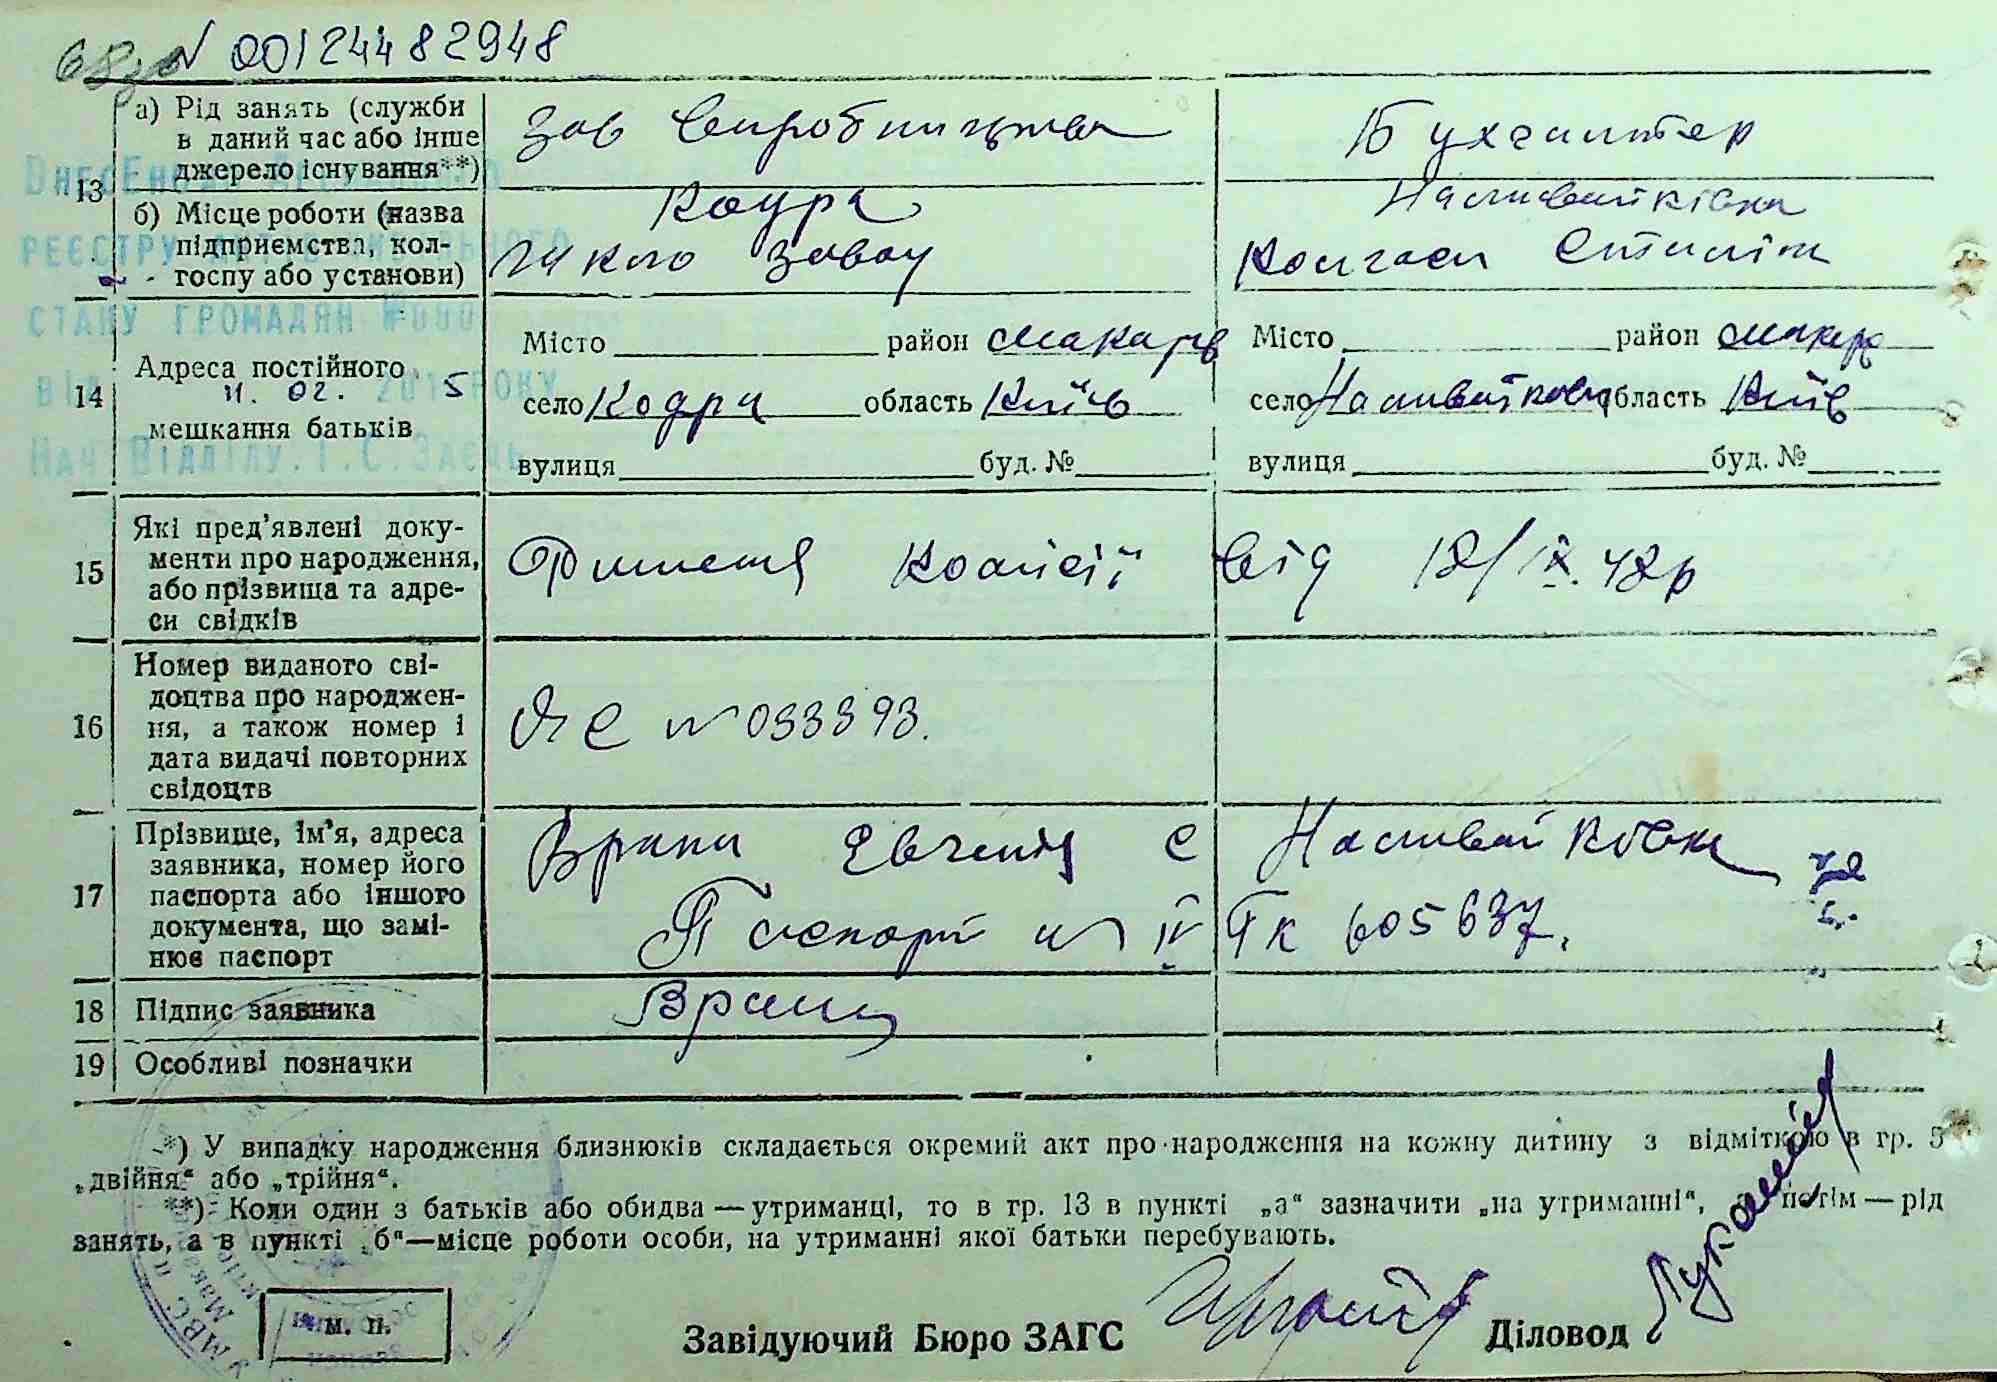 № 00124482948
13
а) Рід занять (служби
в даний час або інше
джерело існування**)
Зав Виробництва
Бухгалтер
б) Місце роботи (назва
підприємства, кол-
госпу або установи)
Кодра
заводу
Наливайківка
Колгосп
ВнесЕно до
РЕЄСТРУ
СТАНУ ГРОМАДЯН
ВІД 11. 02. 2015 РОКУ
Нач Відділу. І. С. Заєць
14
Адреса постійного
мешкання батьків
Місто район Макарів
село Кодра область Київ
вулиця буд. №
Місто район Макар
село Наливайківка область Київ
вулиця буд. №
15
Які пред’явлені доку-
менти про народження,
або прізвища та адре-
си свідків
Комісії від 12/IX.42р
16
Номер виданого сві-
доцтва про народжен-
ня, а також номер і
дата видачі повторних
свідоцтв
№ 033393.
17
Прізвище, ім’я, адреса
заявника, номер його
паспорта або іншого
документа, що замі-
нює паспорт
Евгенія с Наливайківка
Паспорт № IV ТК 605637.
18
Підпис заявника
19
Особливі позначки
*) У випадку народження близнюків складається окремий акт про народження на кожну дитину з відміткою в гр. 5
„двійня“ або „трійня“.
**) Коли один з батьків або обидва — утриманці, то в гр. 13 в пункті „а“ зазначити „на утриманні“, а потім — рід
занять, а в пункті „б“—місце роботи особи, на утриманні якої батьки перебувають.
м. п.
Завідуючий Бюро ЗАГС
Діловод